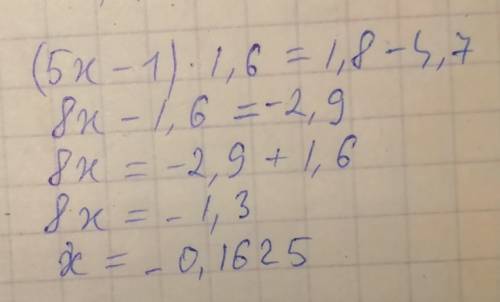 (5x-1)·1,6=1,8-4,7
8x-1,6=-2,9
8x=-2,9+1,6
8x=-1,3
x=-0,1625